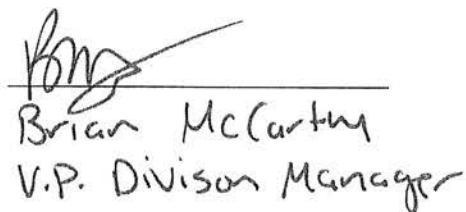 Brian McCarthy
V.P. Divison Manager